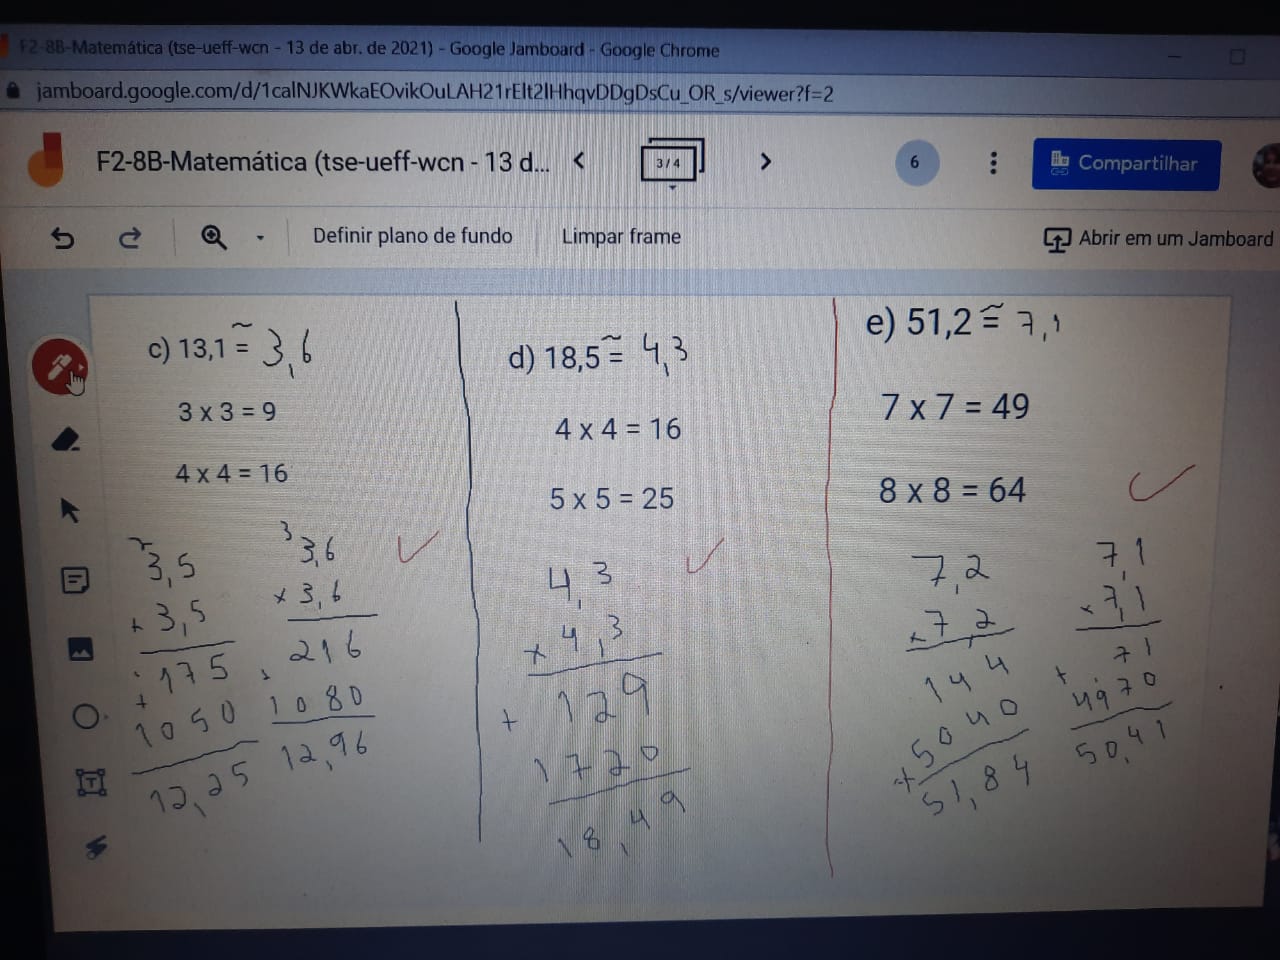 F2-8B-Matemática (tse-ueff-wcn - 13 de abr. de 2021) - Google Jamboard - Google Chrome
jamboard.google.com/d/1calNJKWkaEOvikOuLAH21rElt2lHhqvDDgDsCu_OR_s/viewer?f=2
F2-8B-Matemática (tse-ueff-wcn - 13 d...
3 / 4
6
Compartilhar
Definir plano de fundo
Limpar frame
Abrir em um Jamboard
c) 13,1 ≅ 3,6
3 x 3 = 9
4 x 4 = 16
3,5
x 3,5
+ 175
1050
12,25
3
3,6
x 3,6
216
1080
12,96
d) 18,5 ≅ 4,3
4 x 4 = 16
5 x 5 = 25
4,3
x 4,3
+ 129
1720
18,49
e) 51,2 ≅ 7,1
7 x 7 = 49
8 x 8 = 64
7,2
x 7,2
144
+ 5040
51,84
7,1
x 7,1
+ 71
4970
50,41